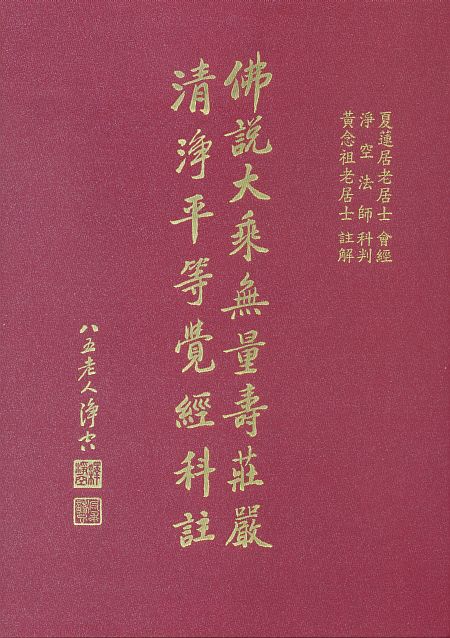 夏蓮居老居士 會經
淨空法師 科判
黃念祖老居士 註解
佛說大乘無量壽莊嚴
清淨平等覺經科註
八五老人淨空